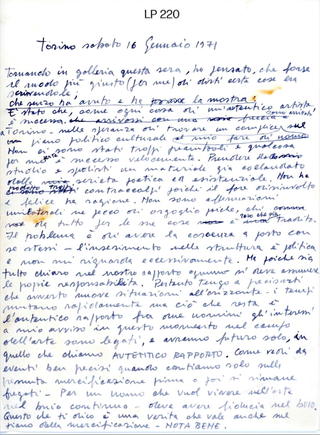 LP 220
Torino sabato 16 Gennaio 1971
Tornando in galleria questa sera, ho pensato, che forse
il modo più giusto (per me) di dirti certe cose era
scrivendole;
che senso ha avuto e ha la mostra?
E' stato che, come ogni cosa di un autentico artista,
è successa
a Torino - nella speranza di trovare un complice sul
piano politico culturale
Non ci sono stati troppi preamboli e qualcosa
per me è successo velocemente. Prendere
studio e spostarsi un materiale già collaudato
serietà poetica ed esistenziale. Non ha
contraccolpi poiché il fare disinvolto
e felice ha ragione. Non sono affermazioni
unilaterali ne pecco di orgoglio poiché, chi
dà tutto per sé le sue cose tradito.
Il problema è di avere la coscienza a posto con
se stessi - l'inserimento nella struttura è politica
e non mi riguarda eccessivamente. Ma poiché sia
tutto chiaro nel nostro rapporto ognuno si deve assumere
le proprie responsabilità. Pertanto tengo a precisarti
che avverto nuove situazioni all'orizzonte - i tempi
mutano rapidamente ma ciò che resta è
l'autentico rapporto fra due uomini gli interessi
a mio avviso in questo momento nel campo
dell'arte sono legati, e avranno futuro solo, in
quello che chiamo AUTENTICO RAPPORTO. Come vedi da
eventi ben precisi quando contiamo solo sulla
presunta mercificazione prima o poi si rimane
fregati - Per un uomo che vuol vivere nell'arte
nel buio continuo - deve avere fiducia nel BUIO.
Questo che ti dico è una verità che vale anche sul
piano della mercificazione - NOTA BENE.